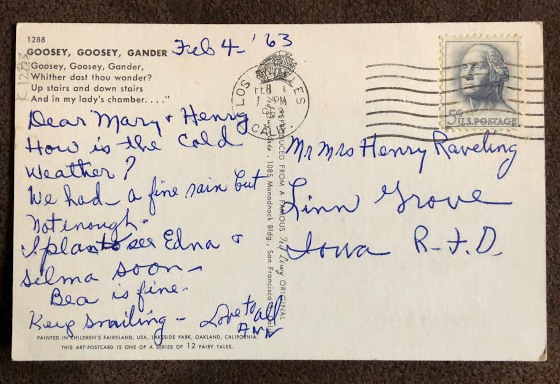 1288
GOOSEY, GOOSEY, GANDER
Feb 4 - '63
"Goosey, Goosey, Gander,
Whither dost thou wander?
Up stairs and down stairs
And in my lady's chamber...."
Dear Mary & Henry
How is the cold
weather?
We had a fine rain but
not enough.
I plan to see Edna &
Selma soon -
Bea is fine.
Keep smiling - Love to all
Ann
PAINTED IN CHILDREN'S FAIRYLAND, USA, LAKESIDE PARK, OAKLAND, CALIFORNIA.
THIS ART-POSTCARD IS ONE OF A SERIES OF 12 FAIRY TALES.
LOS ANGELES
FEB
PM
CALIF
REPRODUCED FROM A FAMOUS ORIGINAL
1085 Monadnock Bldg., San Francisco
5¢ U.S. POSTAGE
Mr Mrs Henry Raveling
Linn Grove
Iowa R-F.D.